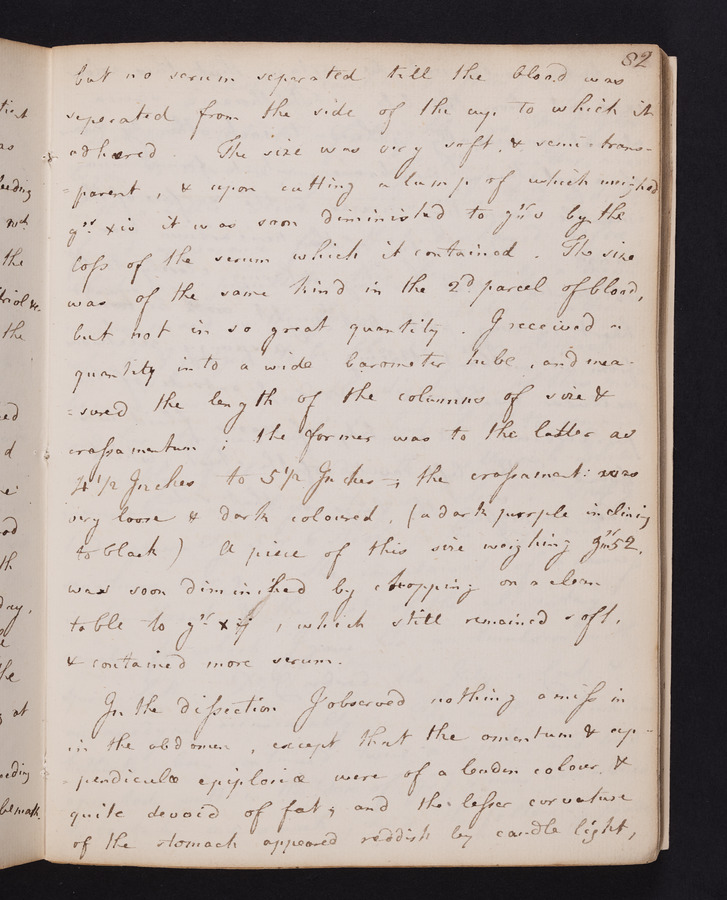 82
but no serum seperated till the blood was
seperated from the side of the cup to which it
adhered. The size was very soft, & semi-trans-
=parent, & upon cutting a lump of which weighed
grs xiv it was soon diminished to grs v by the
loss of the serum which it contained. The size
was of the same kind in the 2d parcel of blood,
but not in so great quantity. I received a
quantity into a wide barometer tube, and mea-
=sured the length of the columns of size &
crassamentum; the former was to the latter as
4 1/2 Inches to 5 1/2 Inches; the crassament: was
very loose & dark coloured, (a dark purple inclining
to black) A piece of this size weighing grs 52.
was soon diminished by chopping on a clean
table to grs xij, which still remained soft,
& contained more serum.
In the dissection I observed nothing amiss in
in the abdomen, except that the omentum & ap-
-pendiculæ epiploicæ were of a leaden colour, &
quite devoid of fat; and the lesser curvature
of the stomach appeared reddish by candle light,